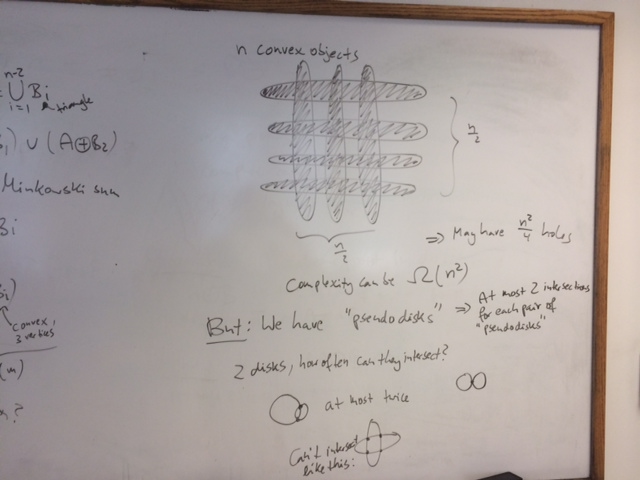 n convex objects
n-2
= ∪ Bi
i=1
triangle
) ∪ (A⊕B2)
Minkowski sum
Bi
convex,
3 vertices
(m)
?
n/2
n/2
⇒ May have n²/4 holes
Complexity can be Ω(n²)
But: We have "pseudodisks" ⇒ At most 2 intersections
for each pair of
"pseudodisks"
2 disks, how often can they intersect?
at most twice
Can't intersect
like this: